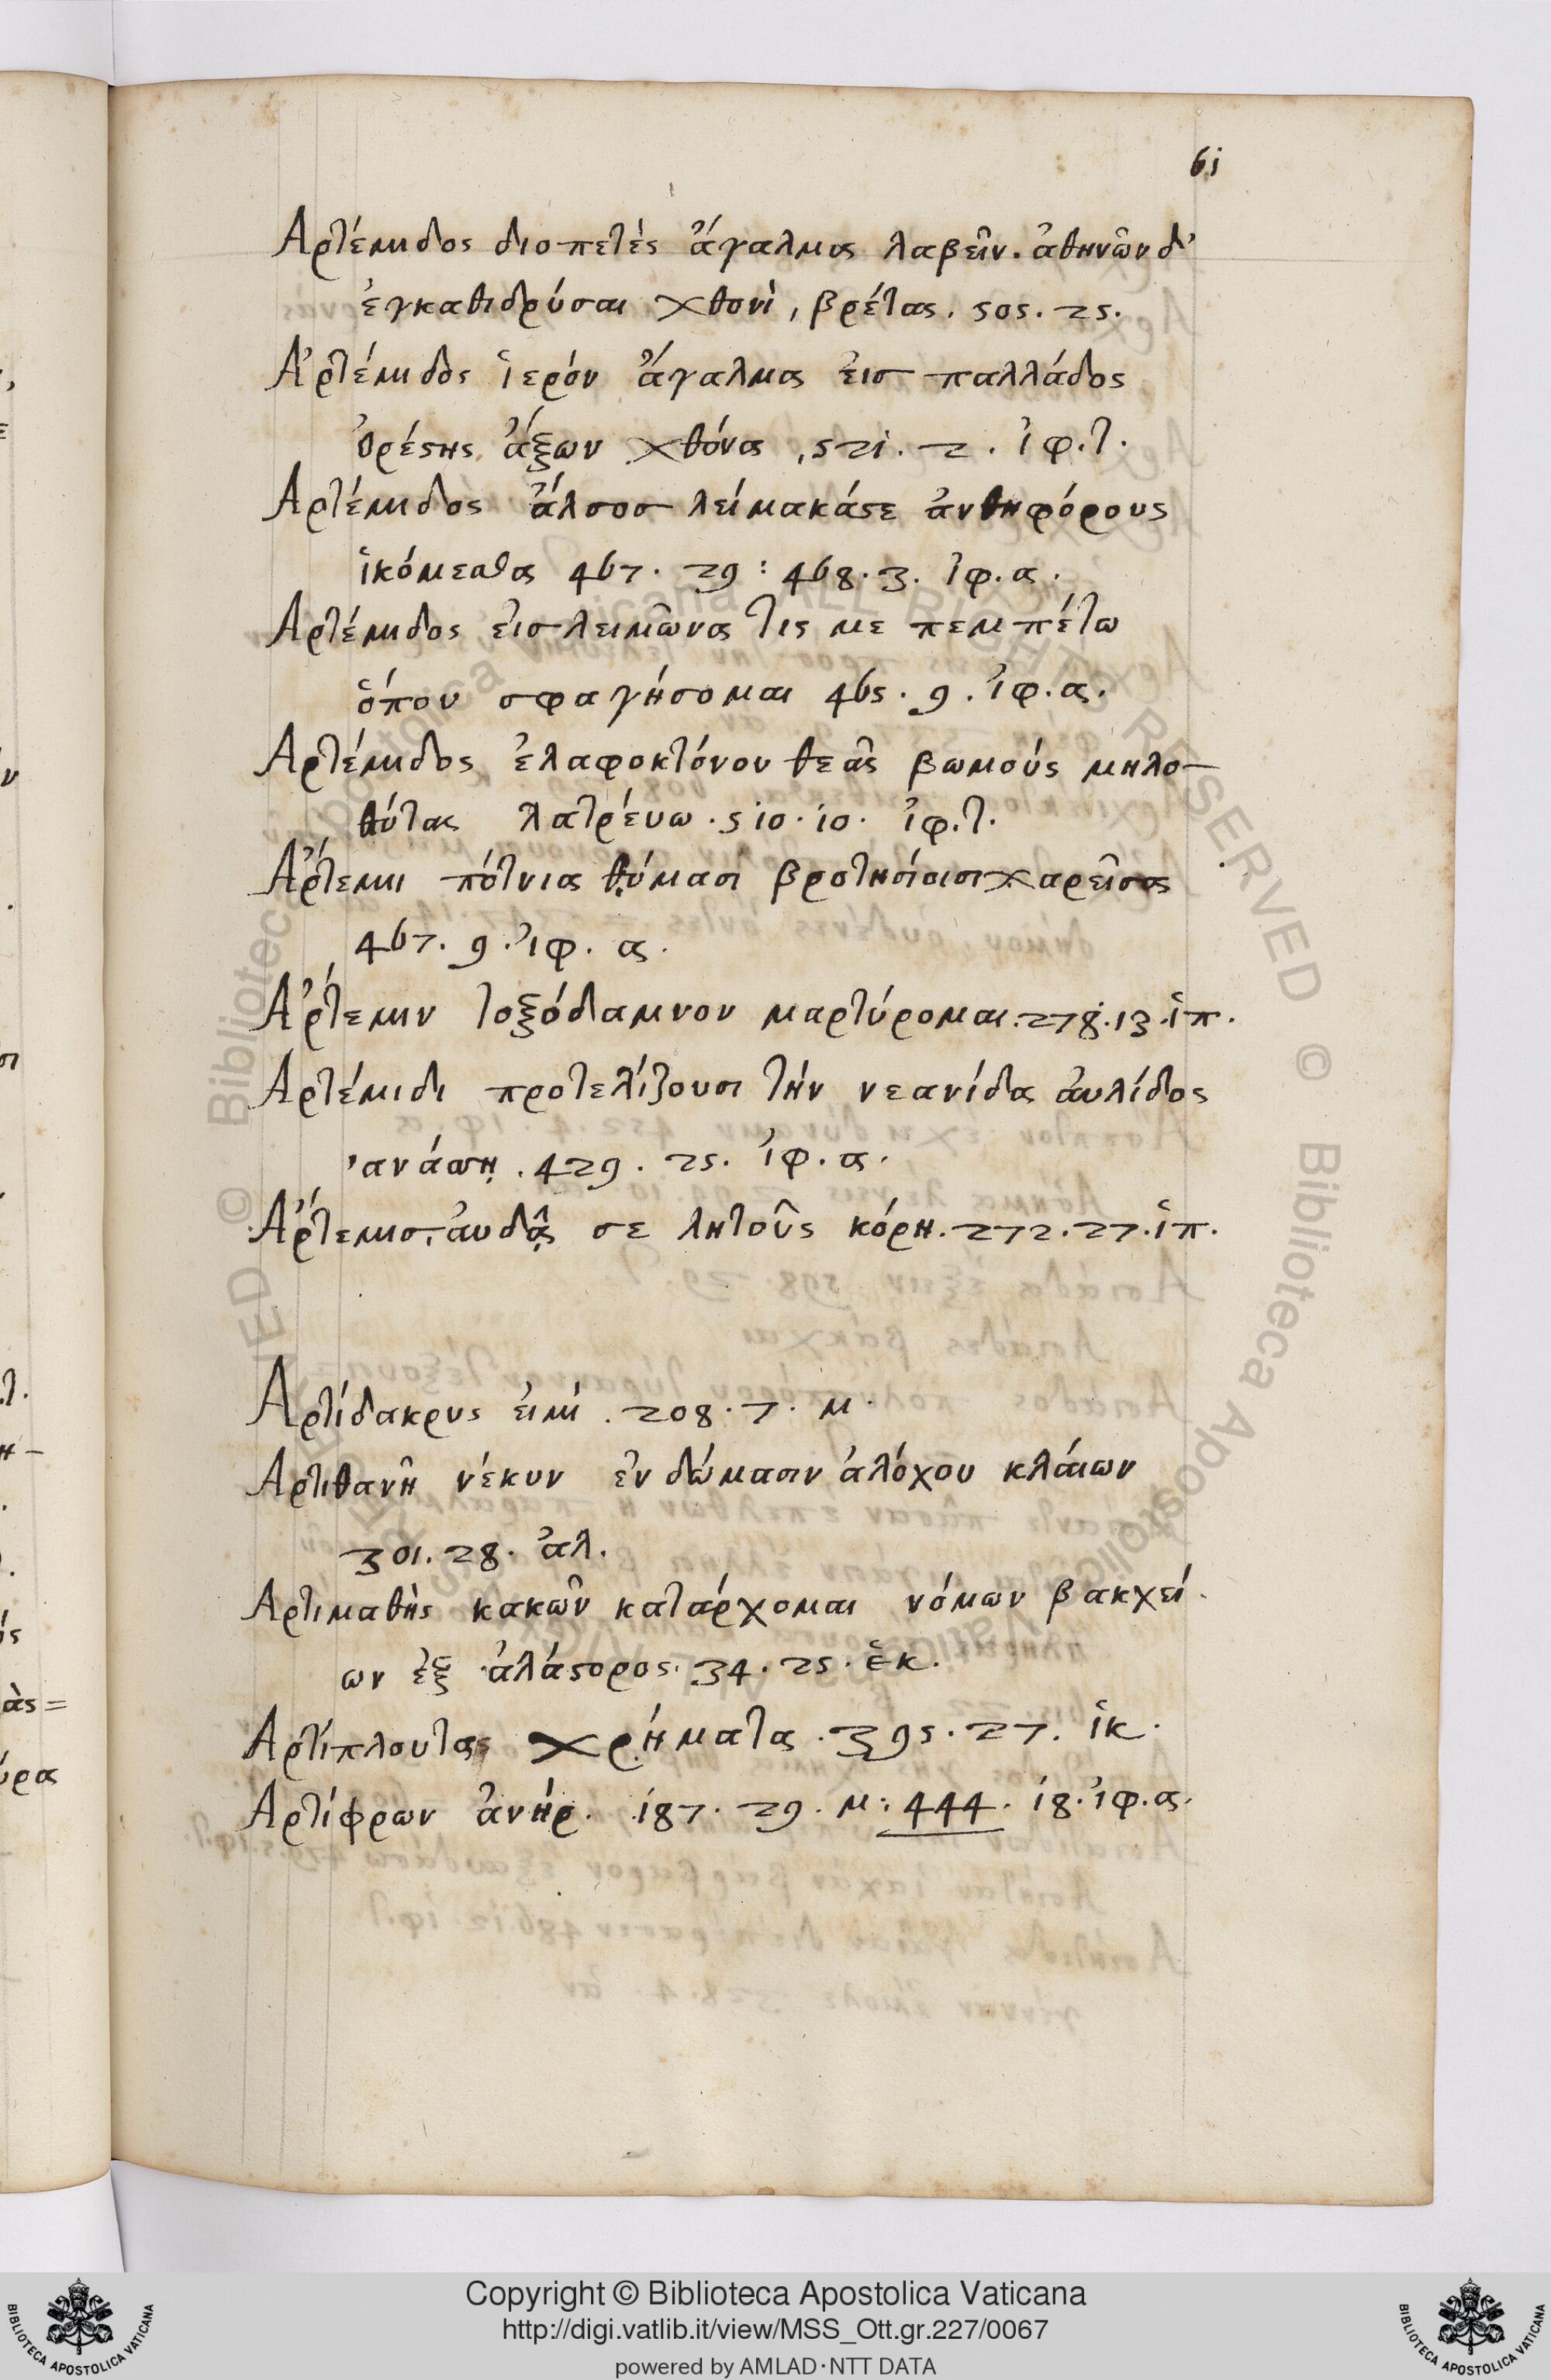 61
Αρτέμιδος διοπετὲς ἄγαλμα λαβεῖν. ἀθηνῶν δ'
ἐγκαθιδρύσαι χθονὶ, βρέτας. 505. 25.
Ἀρτέμιδος ἱερόν ἄγαλμα εἰσ παλλάδος
ὀρέϛης ἄξων χθόνα, 521. 2. ἰφ. τ.
Αρτέμιδος ἄλσοσ λείμακάϛε ἀνθηφόρους
ἱκόμεσθα 467. 29: 468. 3. ἰφ. α.
Αρτέμιδος εἰσ λειμῶνα τις με πεμπέτω
ὁπου σφαγήσομαι 465. 9. ἰφ. α.
Αρτέμιδος ἐλαφοκτόνου θεᾶς βωμούς μηλο-
θύτας λατρέυω. 510. 10. ἰφ. τ.
Ἄρτεμι πότνια θύμασι βροτησίοισι χαρεῖσα
467. 9. ἰφ. α.
Ἄρτεμιν τοξόδαμνον μαρτύρομαι. 278. 13. ἱπ.
Αρτέμιδι προτελίζουσι τήν νεανίδα ἀυλίδος
ἀνάσσῃ. 429. 25. ἰφ. α.
Ἄρτεμισ, ἀυδᾷ σε λητοῦς κόρη. 272. 27. ἱπ.
Αρτίδακρυς εἰμί. 208. 7. μ.
Αρτιθανῆ νέκυν ἐν δώμασιν ἀλόχου κλάιων
301. 28. ἀλ.
Αρτιμαθὴς κακῶν κατάρχομαι νόμων βακχεί-
ων ἐξ ἀλάϛορος. 34. 25. ἑκ.
Αρτίπλουτα χρήματα. 395. 27. ἱκ.
Αρτίφρων ἀνήρ. 187. 29. μ: 444. 18. ἰφ. α.
Copyright © Biblioteca Apostolica Vaticana
http://digi.vatlib.it/view/MSS_Ott.gr.227/0067
powered by AMLAD·NTT DATA